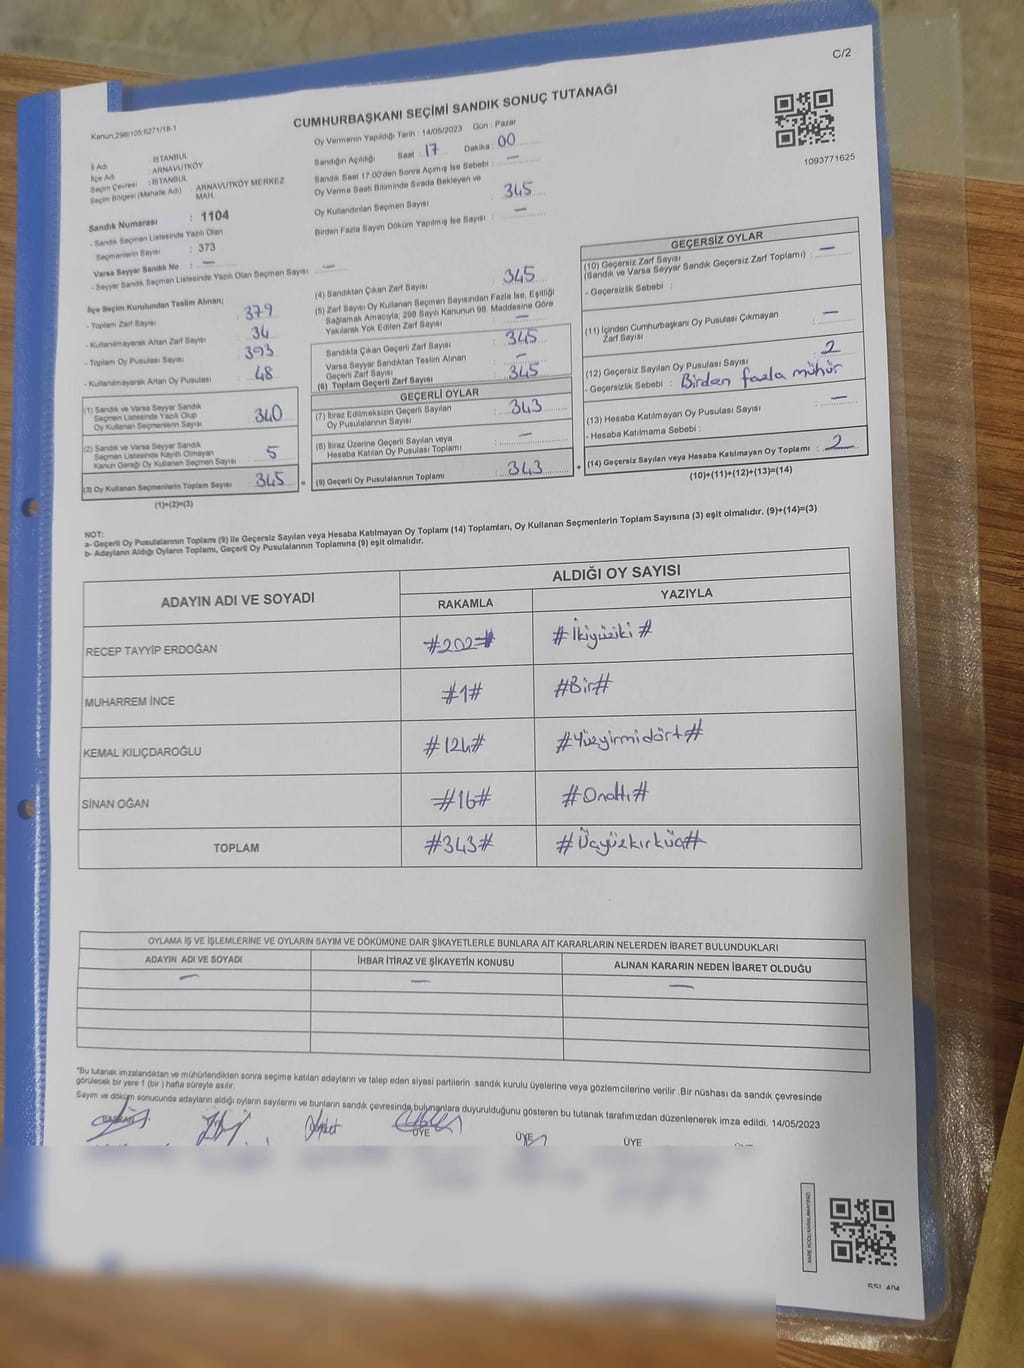 C/2
CUMHURBAŞKANI SEÇİMİ SANDIK SONUÇ TUTANAĞI
Kanun:298/105;6271/18-1
1093771625
İl Adı : İSTANBUL
İlçe Adı : ARNAVUTKÖY
Seçim Çevresi : İSTANBUL
Seçim Bölgesi (Mahalle Adı) : ARNAVUTKÖY MERKEZ
MAH.
Sandık Numarası : 1104
- Sandık Seçmen Listesinde Yazılı Olan
Seçmenlerin Sayısı : 373
Varsa Seyyar Sandık No : —
- Seyyar Sandık Seçmen Listesinde Yazılı Olan Seçmen Sayısı : —
Oy Vermenin Yapıldığı Tarih : 14/05/2023 Gün : Pazar
Sandığın Açıldığı Saat : 17 Dakika : 00
Sandık Saat 17:00'den Sonra Açılmış İse Sebebi : —
Oy Verme Saati Bitiminde Sırada Bekleyen ve
Oy Kullandırılan Seçmen Sayısı : 345
Birden Fazla Sayım Döküm Yapılmış İse Sayısı : —
İlçe Seçim Kurulundan Teslim Alınan;
- Toplam Zarf Sayısı : 379
- Kullanılmayarak Artan Zarf Sayısı : 34
- Toplam Oy Pusulası Sayısı : 393
- Kullanılmayarak Artan Oy Pusulası : 48
(1) Sandık ve Varsa Seyyar Sandık
Seçmen Listesinde Yazılı Olup
Oy Kullanan Seçmenlerin Sayısı : 340
(2) Sandık ve Varsa Seyyar Sandık
Seçmen Listesinde Kayıtlı Olmayan
Kanun Gereği Oy Kullanan Seçmen Sayısı : 5
(3) Oy Kullanan Seçmenlerin Toplam Sayısı : 345
(1)+(2)=(3)
(4) Sandıktan Çıkan Zarf Sayısı : 345
(5) Zarf Sayısı Oy Kullanan Seçmen Sayısından Fazla İse, Eşitliği
Sağlamak Amacıyla; 298 Sayılı Kanunun 98. Maddesine Göre
Yakılarak Yok Edilen Zarf Sayısı : —
Sandıkta Çıkan Geçerli Zarf Sayısı : 345
Varsa Seyyar Sandıktan Teslim Alınan
Geçerli Zarf Sayısı : —
(6) Toplam Geçerli Zarf Sayısı : 345
GEÇERLİ OYLAR
(7) İtiraz Edilmeksizin Geçerli Sayılan
Oy Pusulalarının Sayısı : 343
(8) İtiraz Üzerine Geçerli Sayılan veya
Hesaba Katılan Oy Pusulası Toplamı : —
(9) Geçerli Oy Pusulalarının Toplamı : 343
GEÇERSİZ OYLAR
(10) Geçersiz Zarf Sayısı
(Sandık ve Varsa Seyyar Sandık Geçersiz Zarf Toplamı) : —
- Geçersizlik Sebebi :
(11) İçinden Cumhurbaşkanı Oy Pusulası Çıkmayan
Zarf Sayısı : —
(12) Geçersiz Sayılan Oy Pusulası Sayısı : 2
- Geçersizlik Sebebi : Birden fazla mühür
(13) Hesaba Katılmayan Oy Pusulası Sayısı : —
- Hesaba Katılmama Sebebi :
(14) Geçersiz Sayılan veya Hesaba Katılmayan Oy Toplamı : 2
(10)+(11)+(12)+(13)=(14)
NOT:
a- Geçerli Oy Pusulalarının Toplamı (9) ile Geçersiz Sayılan veya Hesaba Katılmayan Oy Toplamı (14) Toplamları, Oy Kullanan Seçmenlerin Toplam Sayısına (3) eşit olmalıdır. (9)+(14)=(3)
b- Adayların Aldığı Oyların Toplamı, Geçerli Oy Pusulalarının Toplamına (9) eşit olmalıdır.
ADAYIN ADI VE SOYADI
ALDIĞI OY SAYISI
RAKAMLA YAZIYLA
RECEP TAYYİP ERDOĞAN #202# #İkiyüziki#
MUHARREM İNCE #1# #Bir#
KEMAL KILIÇDAROĞLU #124# #Yüzyirmidört#
SİNAN OĞAN #16# #Onaltı#
TOPLAM #343# #Üçyüzkırküç#
OYLAMA İŞ VE İŞLEMLERİNE VE OYLARIN SAYIM VE DÖKÜMÜNE DAİR ŞİKAYETLERLE BUNLARA AİT KARARLARIN NELERDEN İBARET BULUNDUKLARI
ADAYIN ADI VE SOYADI İHBAR İTİRAZ VE ŞİKAYETİN KONUSU ALINAN KARARIN NEDEN İBARET OLDUĞU
— — —
*Bu tutanak imzalandıktan ve mühürlendikten sonra seçime katılan adayların ve talep eden siyasi partilerin sandık kurulu üyelerine veya gözlemcilerine verilir .Bir nüshası da sandık çevresinde
görülecek bir yere 1 (bir ) hafta süreyle asılır.
Sayım ve döküm sonucunda adayların aldığı oyların sayılarını ve bunların sandık çevresinde bulunanlara duyurulduğunu gösteren bu tutanak tarafımızdan düzenlenerek imza edildi. 14/05/2023
BAŞKAN ÜYE ÜYE ÜYE
KARE KODU KARALAMAYINIZ!